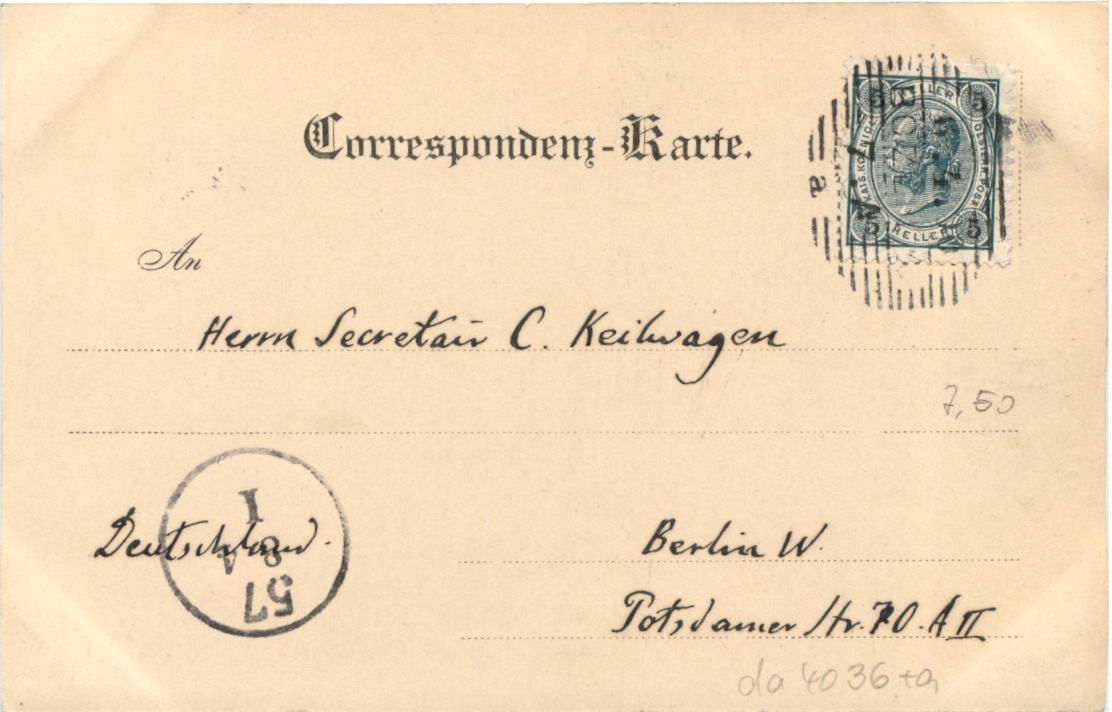 Correspondenz-Karte.
5 HELLER 5
KAIS. KOENIGL. OESTERR. POST
5 HELLER 5
a
An
Herrn Secretair C. Keilwagen
7,50
Deutschland.
Berlin W.
Potsdamer Str. 70. A II
57
8
A
I
da 4036+a